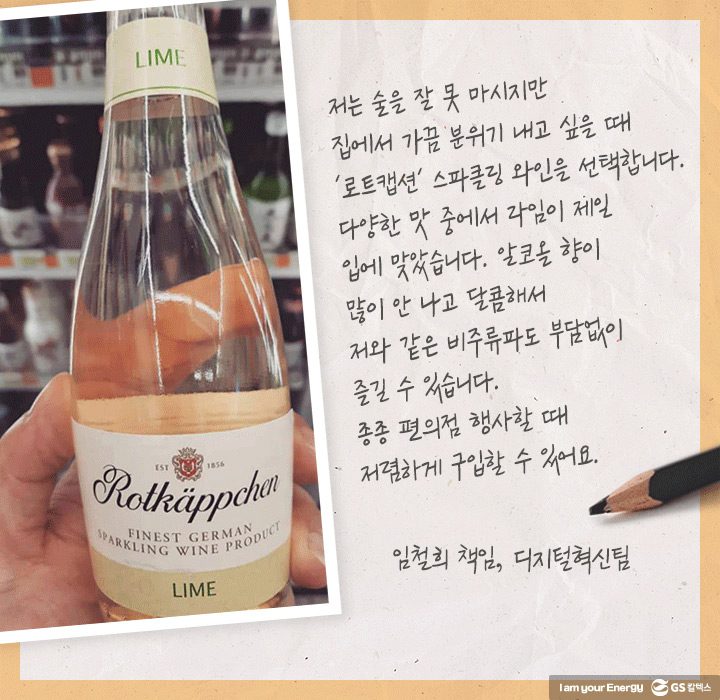 LIME
EST 1856
Rotkäppchen
FINEST GERMAN
SPARKLING WINE PRODUCT
LIME
저는 술을 잘 못 마시지만
집에서 가끔 분위기 내고 싶을 때
‘로트캡션’ 스파클링 와인을 선택합니다.
다양한 맛 중에서 라임이 제일
입에 맞았습니다. 알코올 향이
많이 안 나고 달콤해서
저와 같은 비주류파도 부담없이
즐길 수 있습니다.
종종 편의점 행사할 때
저렴하게 구입할 수 있어요.
임철희 책임, 디지털혁신팀
I am your Energy GS칼텍스